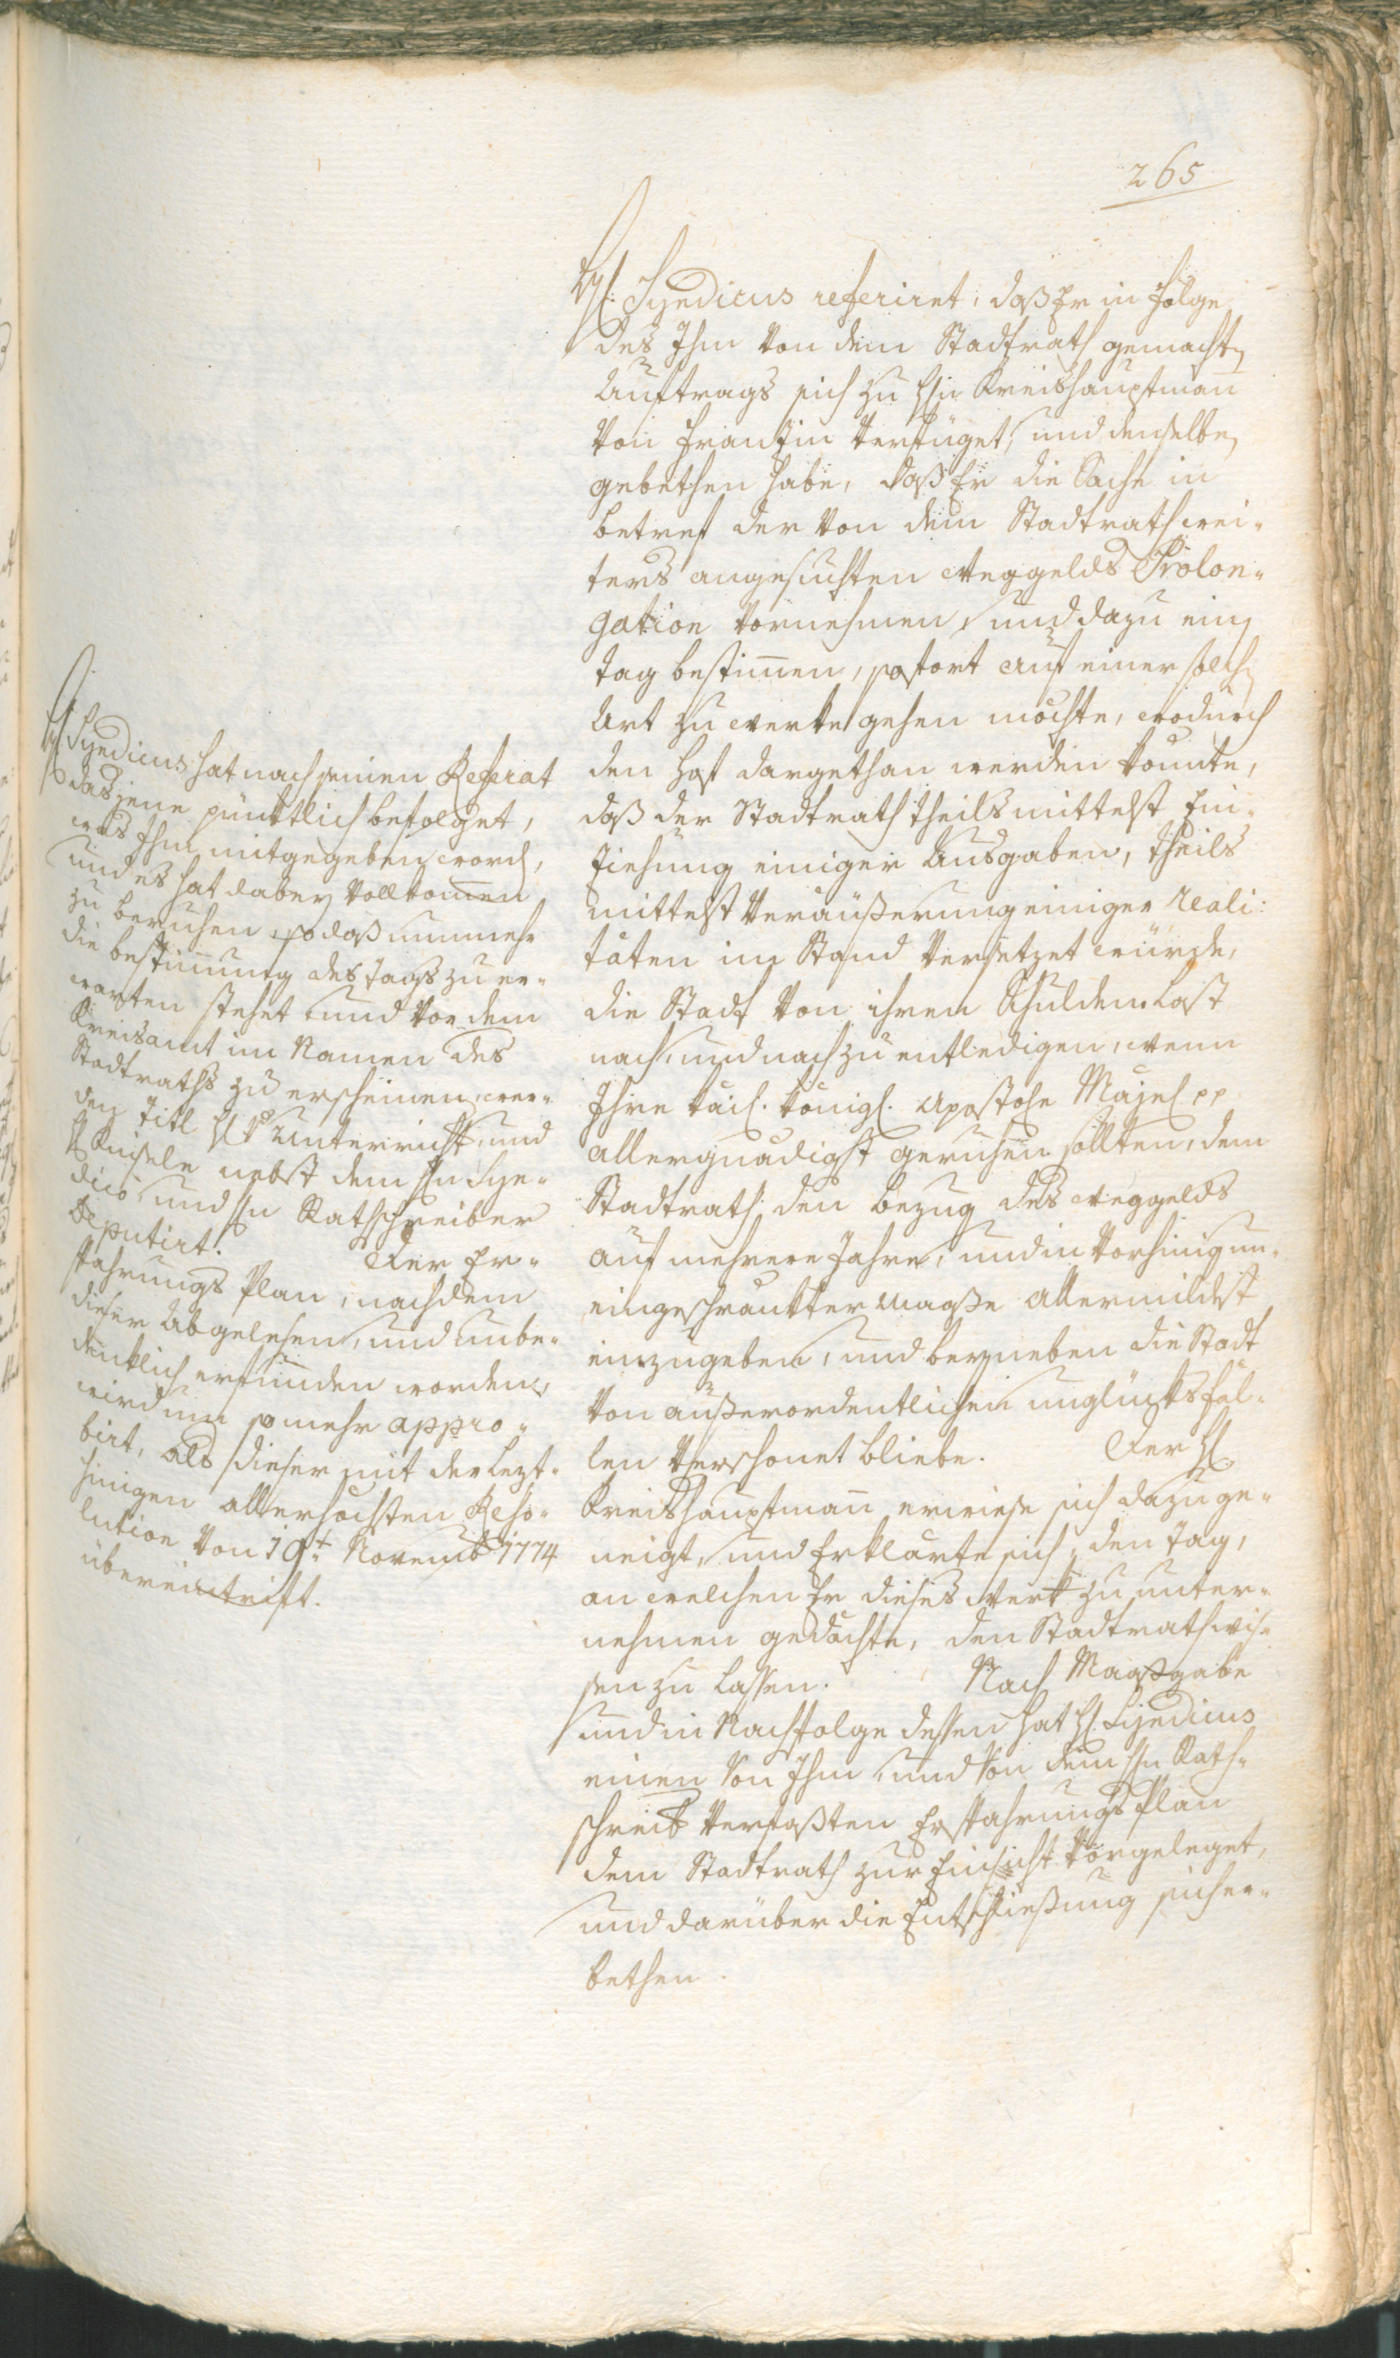 265
H: Syndicus referiret, daß Er in Folge
des Ihm von dem Stadtrath gemachten
Auftrags sich zu Hrn Kreishauptmann
von Franzin verfüget, und denselben
gebethen habe, daß Er die Sache in
betref der von dem Stadtrath wei-
ters angesuchten Weggelds Prolon-
gation vornehmen, und dazu einen
Tag bestimmen, sofort auf einer solchen
Art zu Werke gehen möchte, wodurch
den Hof dargethan werden könnte,
daß der Stadtrath theils mittelst Ein-
ziehung einiger Ausgaben, theils
mittelst Veräußerung einiger Reali:
täten im Stand versetzet würde,
die Stadt von ihren Schulden Last
nach und nach zu entledigen, wenn
Ihre kais. königl. Apostole Majest pp
allergnädigst geruhen sollten, dem
Stadtrath den bezug des Weggelds
auf mehrere Jahre, und in vorhinig un-
eingeschränkter Maaße allermildest
einzugeben, und beyneben die Stadt
von außerordentlichen unglücksfäl-
len verschonet bliebe. Der H
Kreishauptmann erwiese sich dazu ge-
neigt, und Erklärte sich, den Tag,
an welchen Er dieses Werk zu unter-
nehmen gedächte, den Stadtrath wis-
sen zu lassen. Nach Maaßgabe
und in Nachfolge dessen hat H Syndicus
einen von Ihm und von dem Hrn Rath-
schreib verfaßten Ersparungs Plan
dem Stadtrath zur Einsicht vorgeleget,
und darüber die Entschließung sich er-
bethen.
H Syndicus hat nach seinen Referat
dasjene pünktlich befolget,
was Ihm mitgegeben worden,
und es hat dabey vollkommen
zu beruhen, so daß nunmehr
die bestimmung des Tags zu er-
warten stehet, und vor dem
Kreisamt im Namen des
Stadtraths zu erscheinen, wer-
den Titl H v Unterricht, und
H Kuisele nebst dem Hrn Syn-
dico und Hrn Rathschreiber
Deputirt. Der Er-
sparungs Plan, nachdem
dieser Abgelesen, und unbe-
denklich erfunden worden,
wird um so mehr appro-
birt, als dieser mit der lezt-
hinigen allerhöchsten Reso-
lution von 19t Novemb 1774
übereintrift.